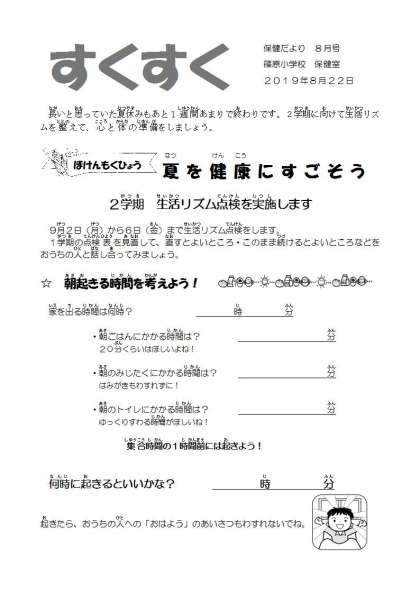 すくすく
保健だより　８月号
篠原小学校　保健室
２０１９年８月２２日
長いと思っていた夏休みもあと１週間あまりで終わりです。２学期に向けて生活リズ
ムを整えて、心と体の準備をしましょう。
ほけんもくひょう
夏を健康にすごそう
２学期　生活リズム点検を実施します
９月２日（月）から６日（金）まで生活リズム点検をします。
１学期の点検表を見直して、直すとよいところ・このまま続けるとよいところなどを
おうちの人と話し合ってみましょう。
☆　朝起きる時間を考えよう！
家を出る時間は何時？　時　分
・朝ごはんにかかる時間は？　分
２０分くらいはほしいよね！
・朝のみじたくにかかる時間は？　分
はみがきもわすれずに！
・朝のトイレにかかる時間は？　分
ゆっくりすわる時間がほしいね！
集合時間の１時間前には起きよう！
何時に起きるといいかな？　時　分
起きたら、おうちの人への「おはよう」のあいさつもわすれないでね。